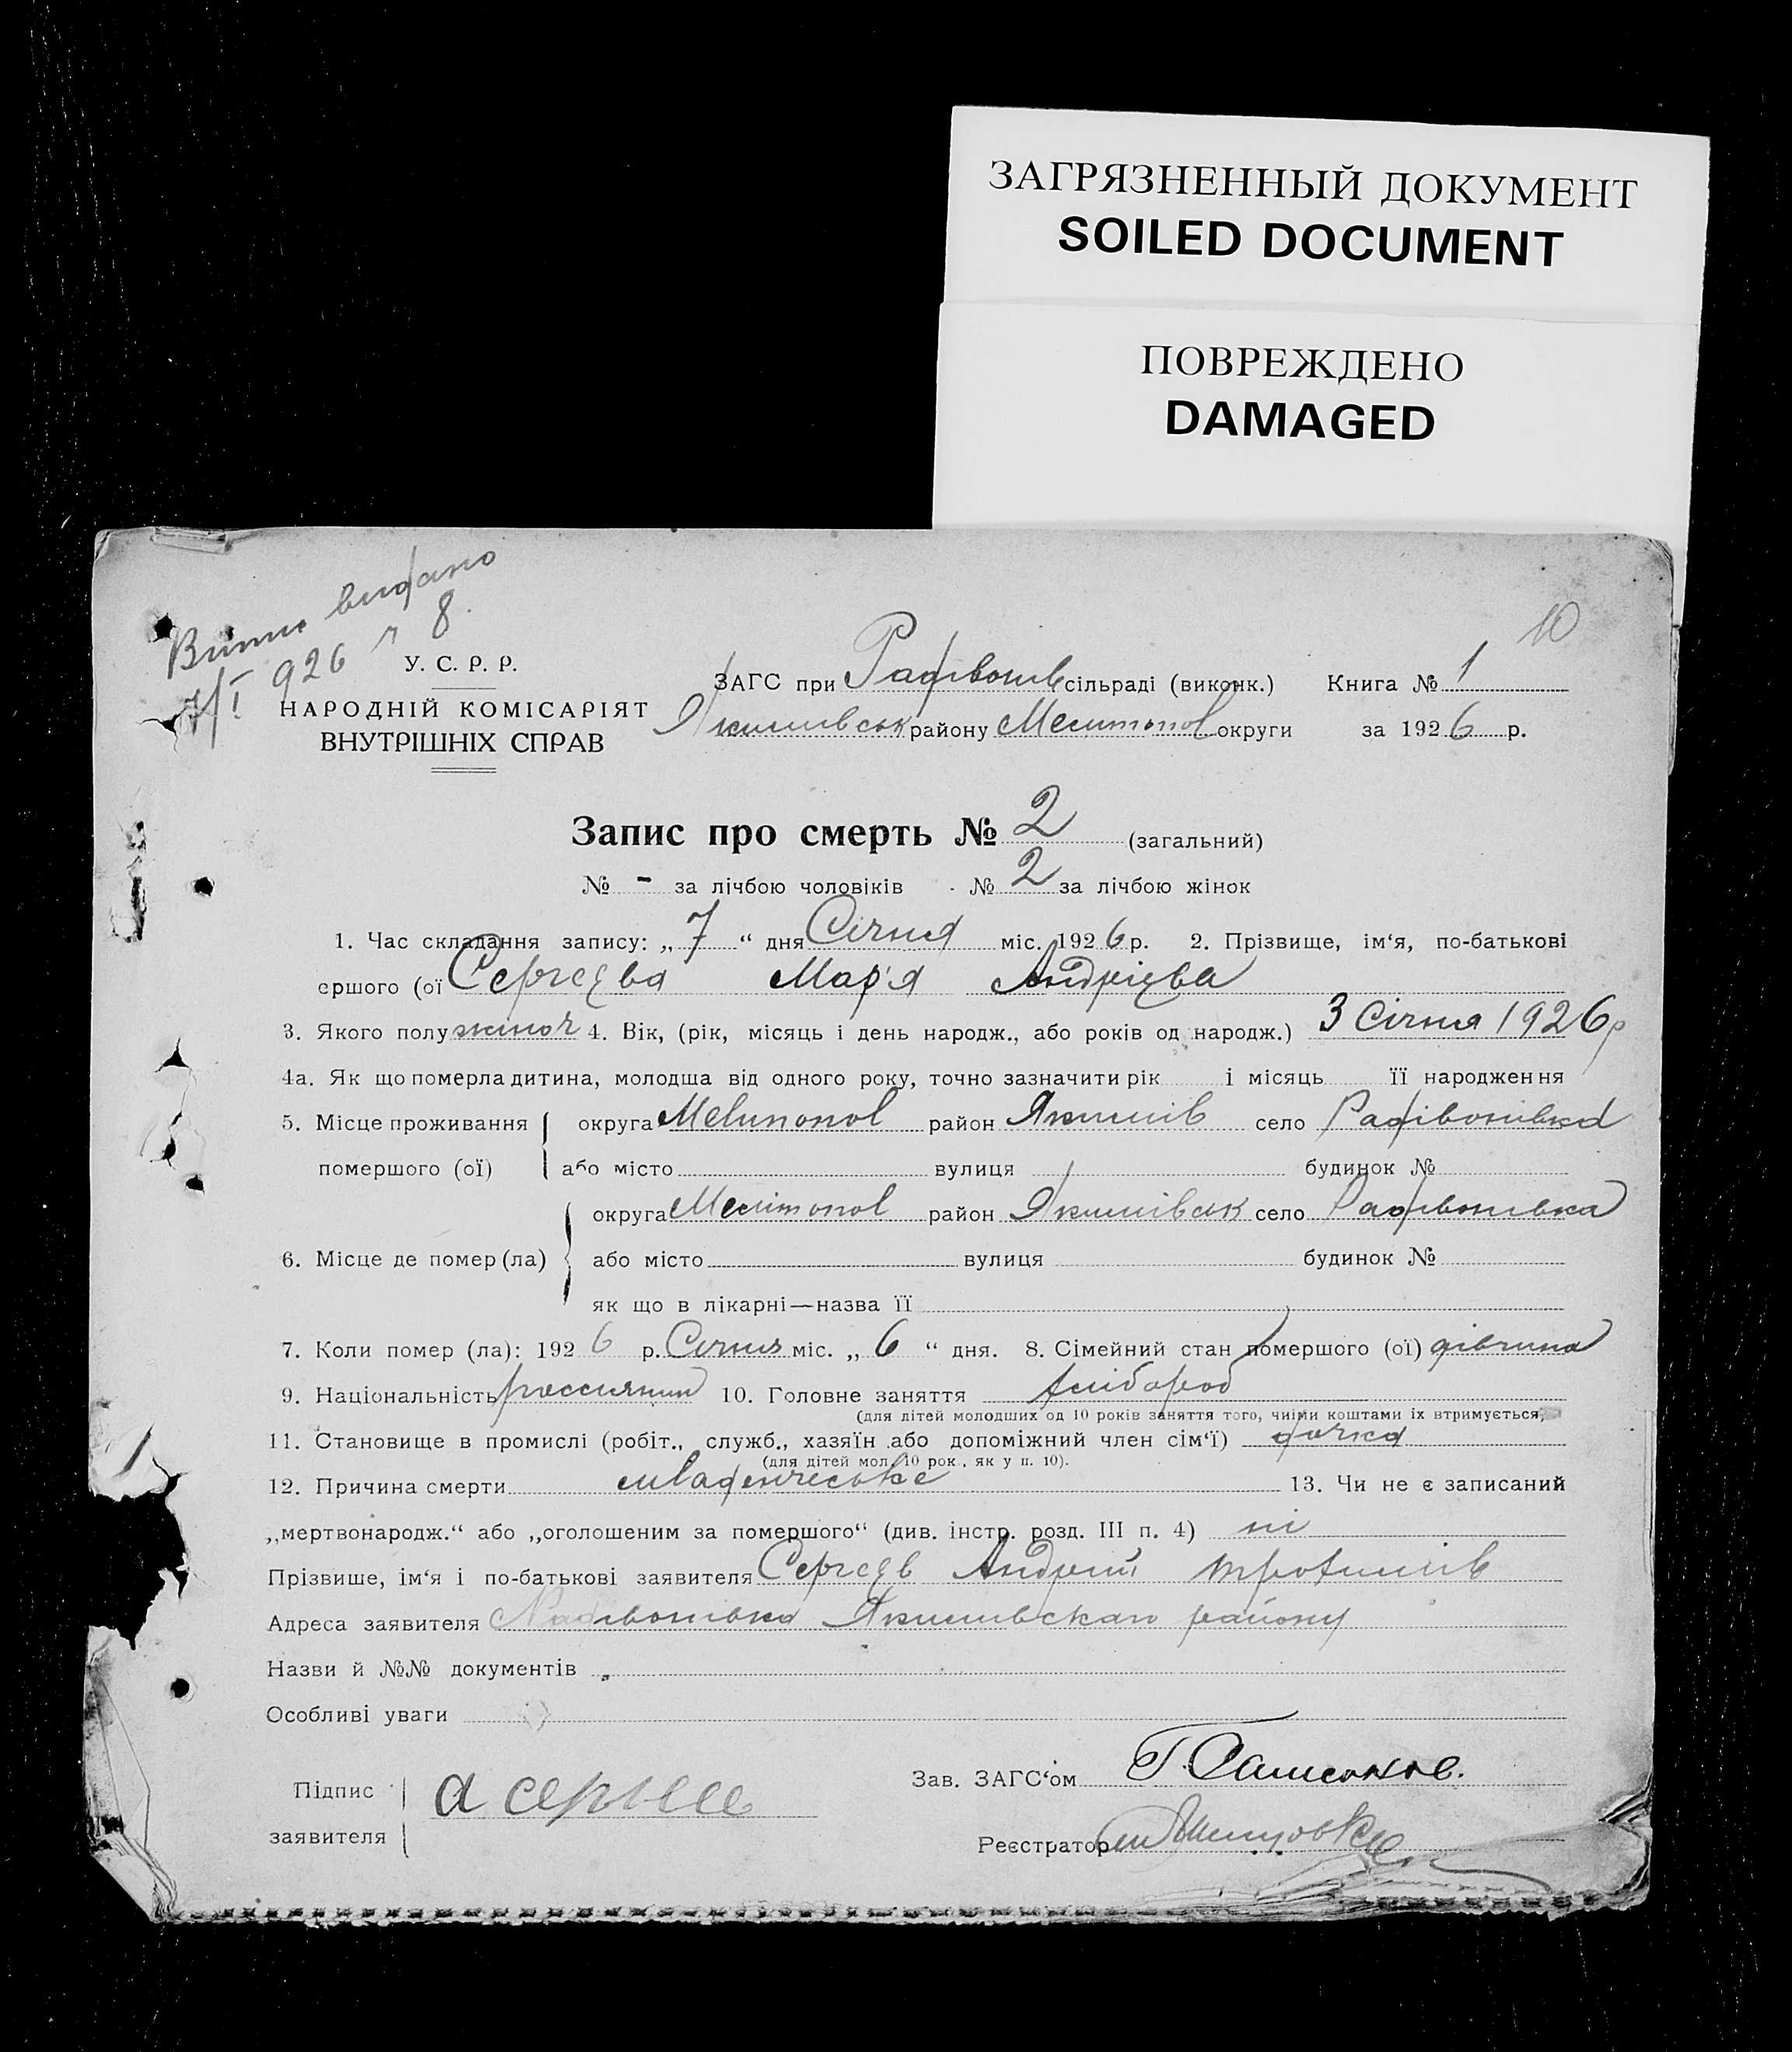 ЗАГРЯЗНЕННЫЙ ДОКУМЕНТ
SOILED DOCUMENT
ПОВРЕЖДЕНО
DAMAGED
видано
7/I 926 r 8.
10
У. С. Р. Р.
НАРОДНІЙ КОМІСАРІЯТ
ВНУТРІШНІХ СПРАВ
ЗАГС при Радівонів сільраді (виконк.) Книга № 1
Якимівськ району Мелитопол округи за 1926 р.
Запис про смерть № 2 (загальний)
№ - за лічбою чоловіків № 2 за лічбою жінок
1. Час складання запису: „ 7 “ дня Січня міс. 1926 р. 2. Прізвище, ім‘я, по-батькові
ершого (ої Сергеєва Мар'я Андрієва
3. Якого полу жіноч 4. Вік, (рік, місяць і день народж., або років од народж.) 3 Січня 1926 р
4а. Як що померла дитина, молодша від одного року, точно зазначити рік і місяць її народження
5. Місце проживання округа Мелитопол район Якимів село Радівонівка
помершого (ої) або місто вулиця будинок №
округа Мелитопол район Якимівськ село Радівонівка
6. Місце де помер (ла) або місто вулиця будинок №
як що в лікарні—назва її
7. Коли помер (ла): 1926 р. Січня міс. „ 6 “ дня. 8. Сімейний стан помершого (ої) дівчина
9. Національність россиянин 10. Головне заняття хлібороб
(для дітей молодших од 10 років заняття того, чиїми коштами їх втримується,
11. Становище в промислі (робіт., служб., хазяїн або допоміжний член сім‘ї) дочка
(для дітей мол. 10 рок., як у п. 10).
12. Причина смерти младенческое 13. Чи не є записаний
„мертвонародж.“ або „оголошеним за помершого“ (див. інстр. розд. III п. 4) ні
Прізвише, ім‘я і по-батькові заявителя Сергеєв Андрій Трофимів
Адреса заявителя Радівонівка Якимівскаго району
Назви й №№ документів
Особливі уваги
Підпис
заявителя
а серьгее
Зав. ЗАГС‘ом
Реєстратор